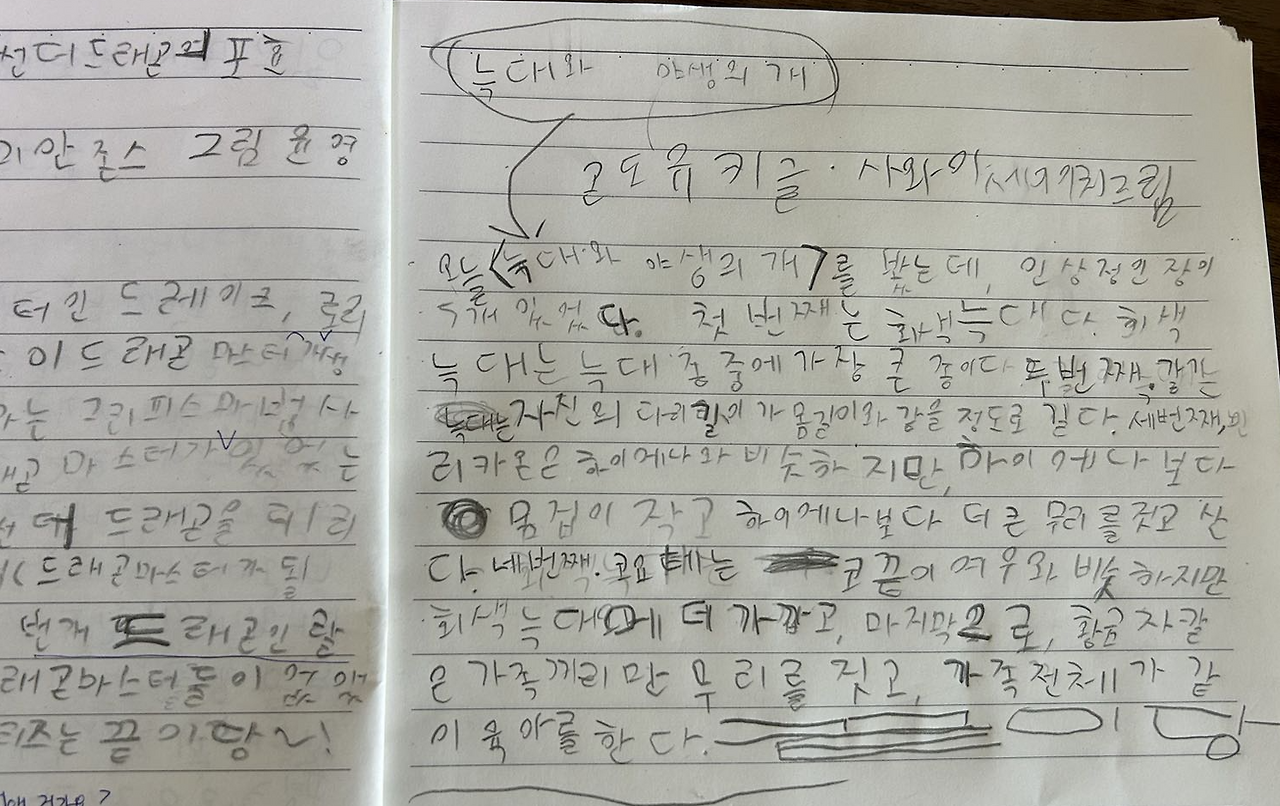 선더드래곤의 포효
이안 존스 그림 윤영
터인 드레이크, 로리
이 드래곤 마스터 개생
는 그리피스 마법사
래곤 마스터가 있 는
선더 드래곤을 데리
드래곤마스터가 될
번개 드래곤인 랄
래곤마스터들이
리즈는 끝이당~!
늑대와 야생의 개
곤도 유키 글. 사와이 세이이치 그림
오늘 <늑대와 야생의 개>를 봤는데, 인상정인 장이
5개 있었다. 첫 번째는 회색늑대다. 회색
늑대는 늑대 종 중에 가장 큰 종이다 두번째, 갈기
늑대는 자신의 다리길이가 몸길이와 같을 정도로 길다. 세번째, 린
리카온은 하이에나와 비슷하지만, 하이에나보다
몸집이 작고 하이에나보다 더 큰 무리를 짓고 산
다. 네번째. 코요테는 코끝이 여우와 비슷하지만
회색늑대에 더 가깝고, 마지막으로, 황금자칼
은 가족끼리만 무리를 짓고, 가족전체가 같
이 육아를 한다.